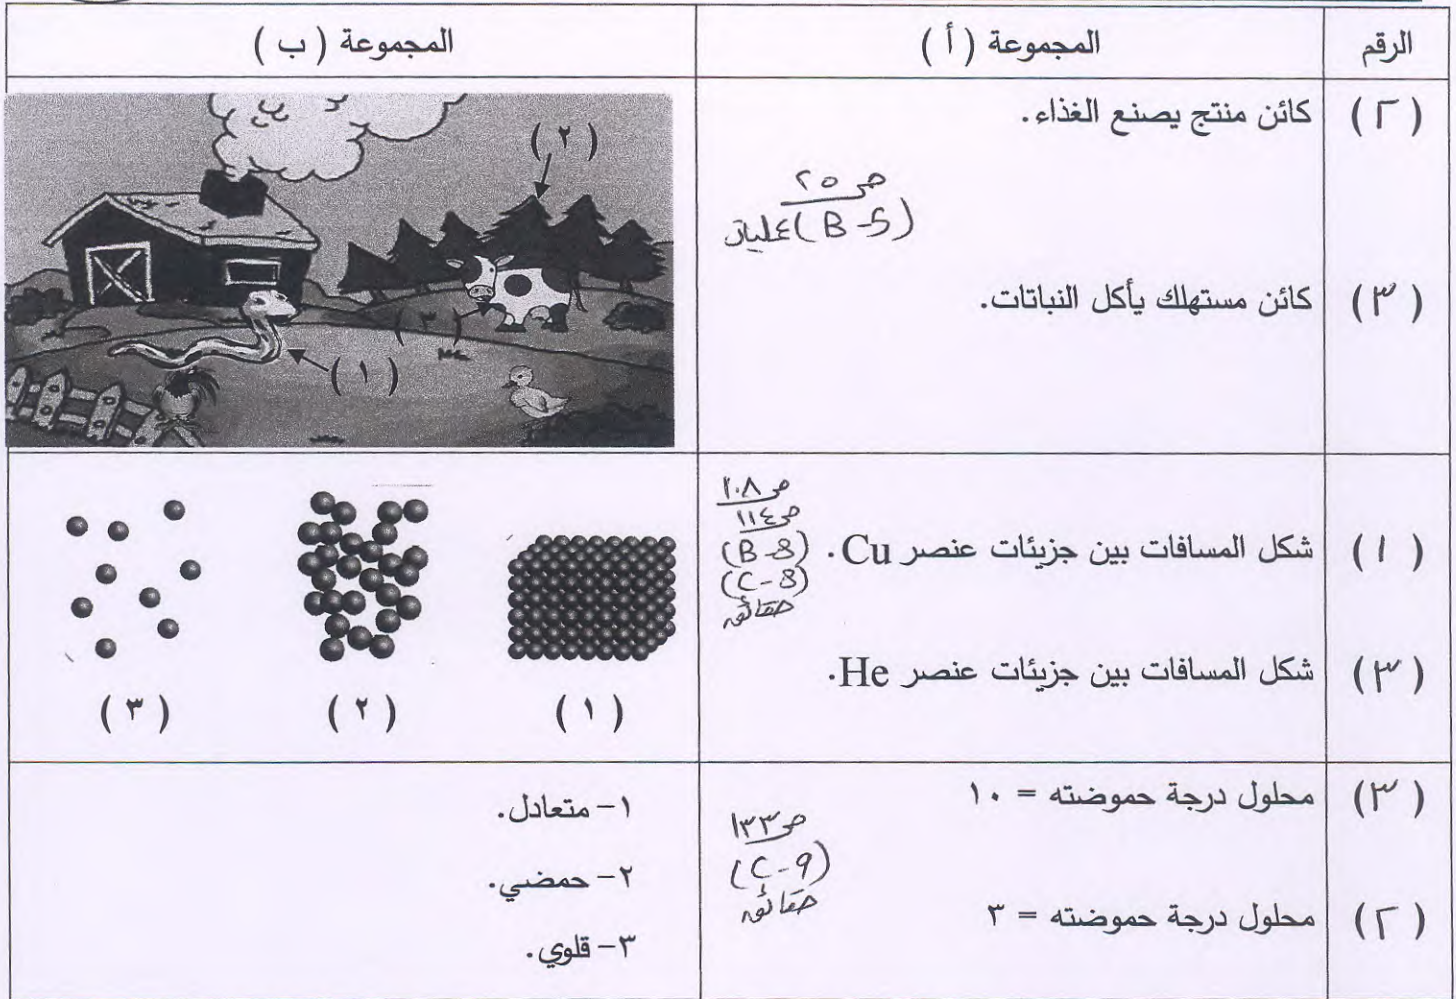 الرقم
المجموعة ( أ )
المجموعة ( ب )
( ٢ )
كائن منتج يصنع الغذاء.
ص ٢٥
(B-5) عمليات
( ٣ )
كائن مستهلك يأكل النباتات.
( ٢ )
( ٣ )
( ١ )
( ١ )
شكل المسافات بين جزيئات عنصر Cu.
ص ١٠٨
ص ١١٤
(B-8)
(C-8)
حقائق
( ٣ )
شكل المسافات بين جزيئات عنصر He.
( ١ )
( ٢ )
( ٣ )
( ٣ )
محلول درجة حموضته = ١٠
ص ١٣٣
(C-9)
حقائق
( ٢ )
محلول درجة حموضته = ٣
١- متعادل.
٢- حمضي.
٣- قلوي.